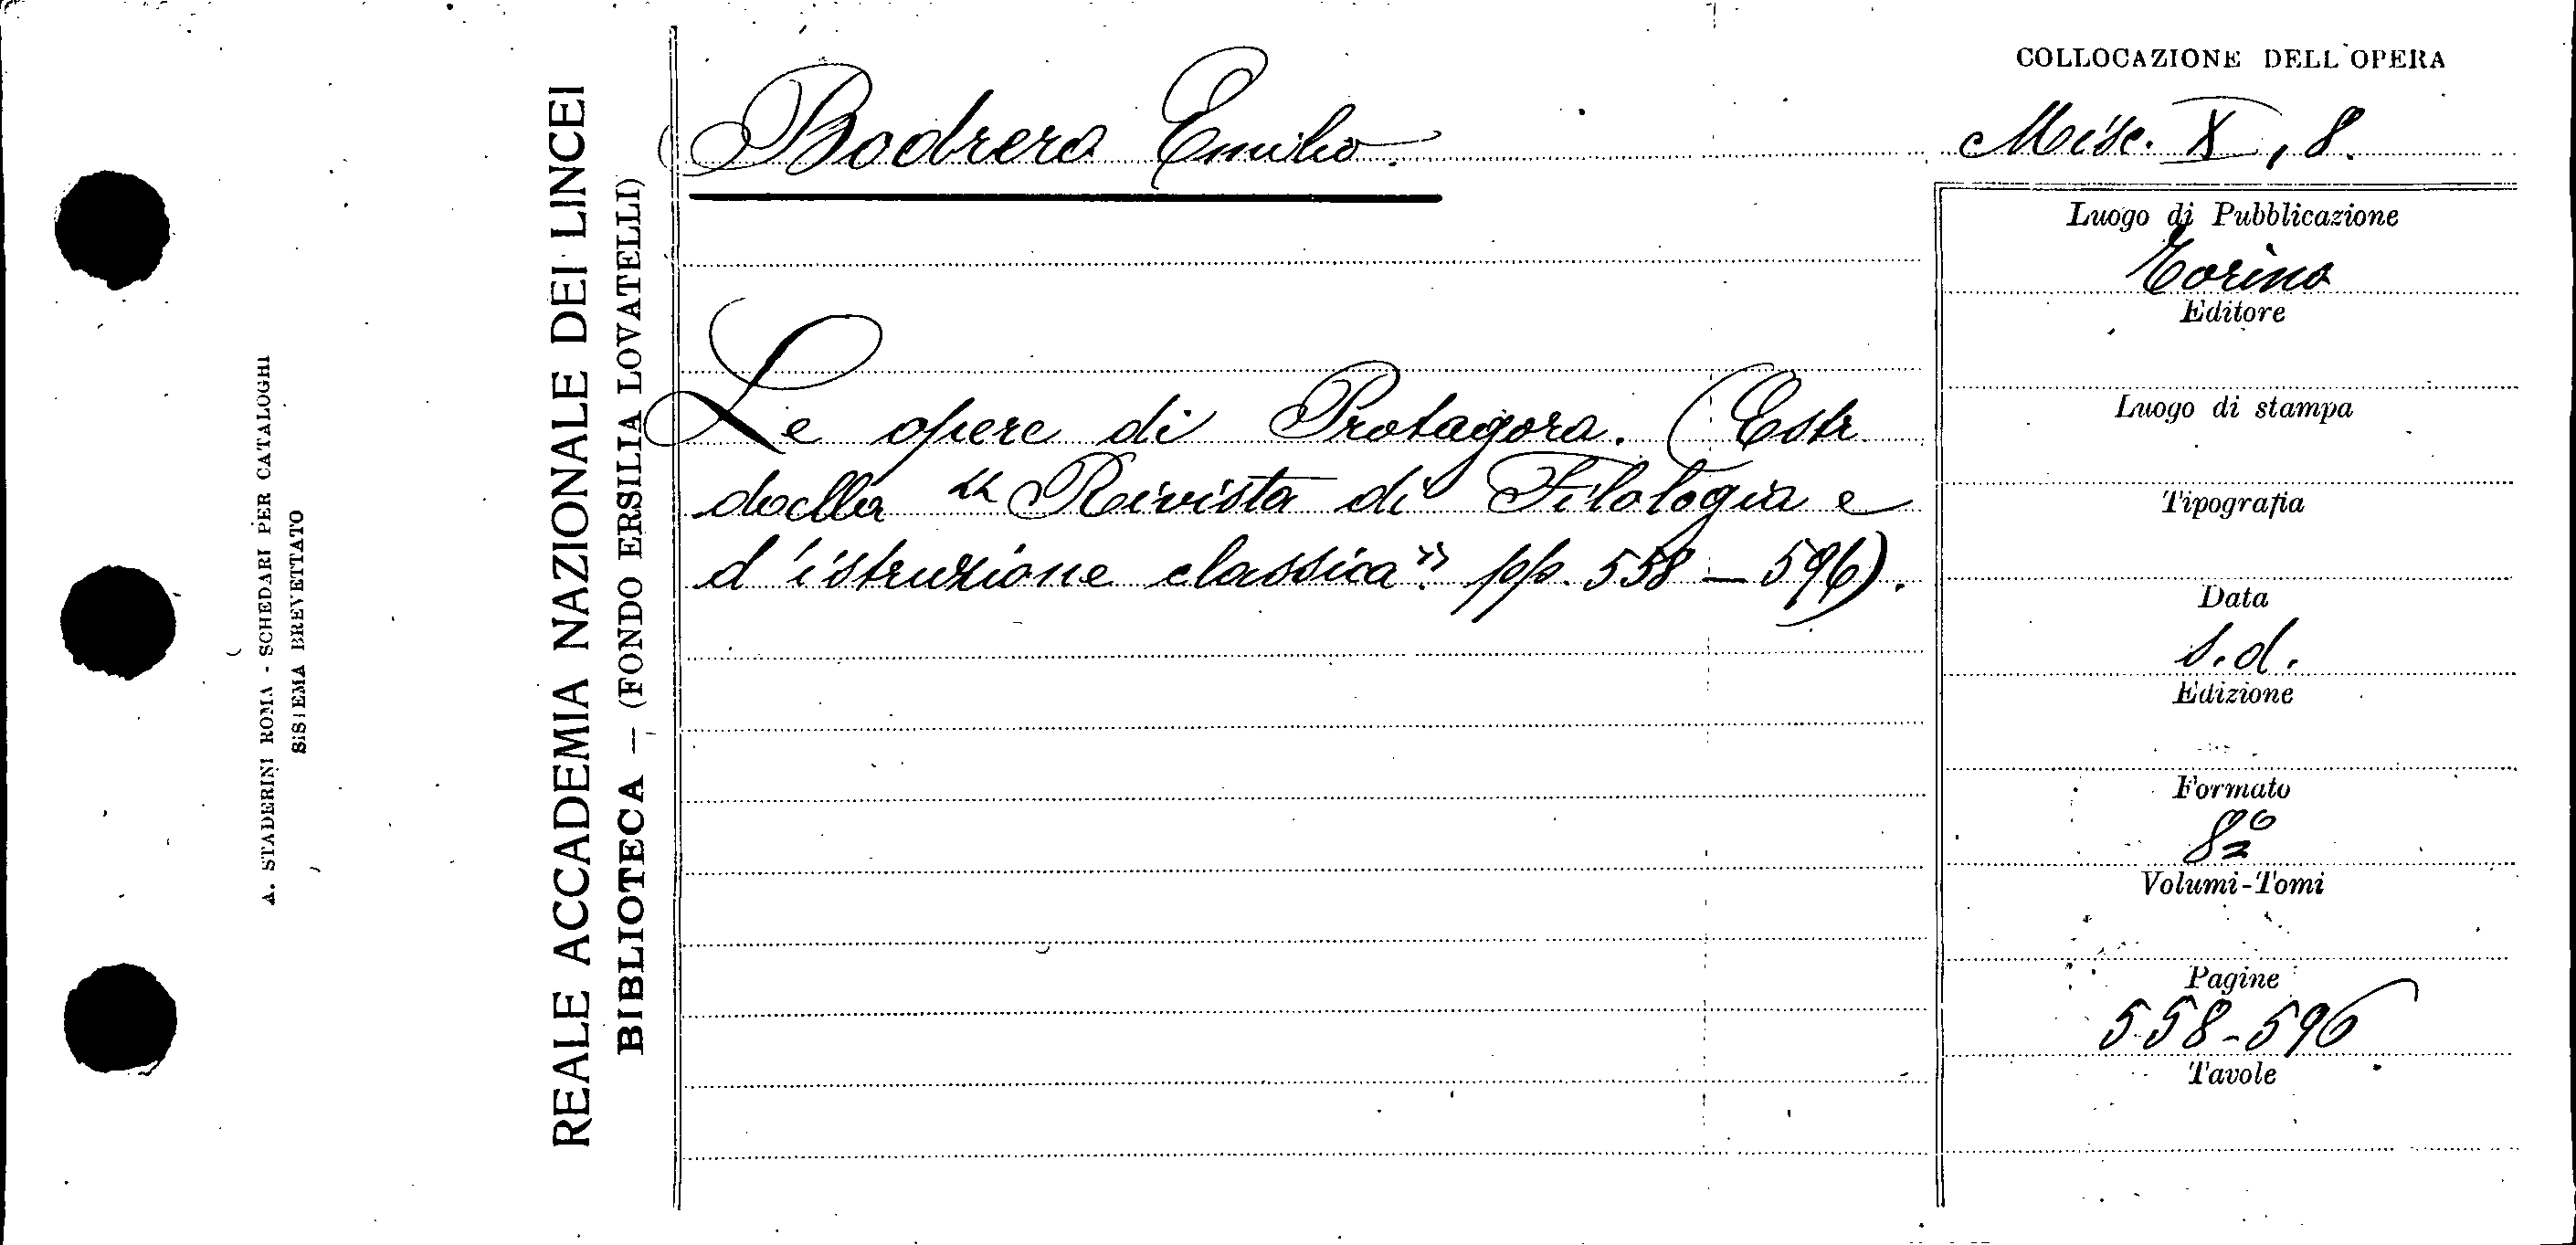 A. STADERINI ROMA - SCHEDARI PER CATALOGHI
SISTEMA BREVETTATO
REALE ACCADEMIA NAZIONALE DEI LINCEI
BIBLIOTECA — (FONDO ERSILIA LOVATELLI)
Bodrero Emilio.
Le opere di Protagora. (Estr.
della "Rivista di Filologia e
d'istruzione classica". pp. 558 – 596).
COLLOCAZIONE DELL'OPERA
Misc. X, 8.
Luogo di Pubblicazione
Torino
Editore
Luogo di stampa
Tipografia
Data
s.d.
Edizione
Formato
8º
Volumi-Tomi
Pagine
558-596
Tavole